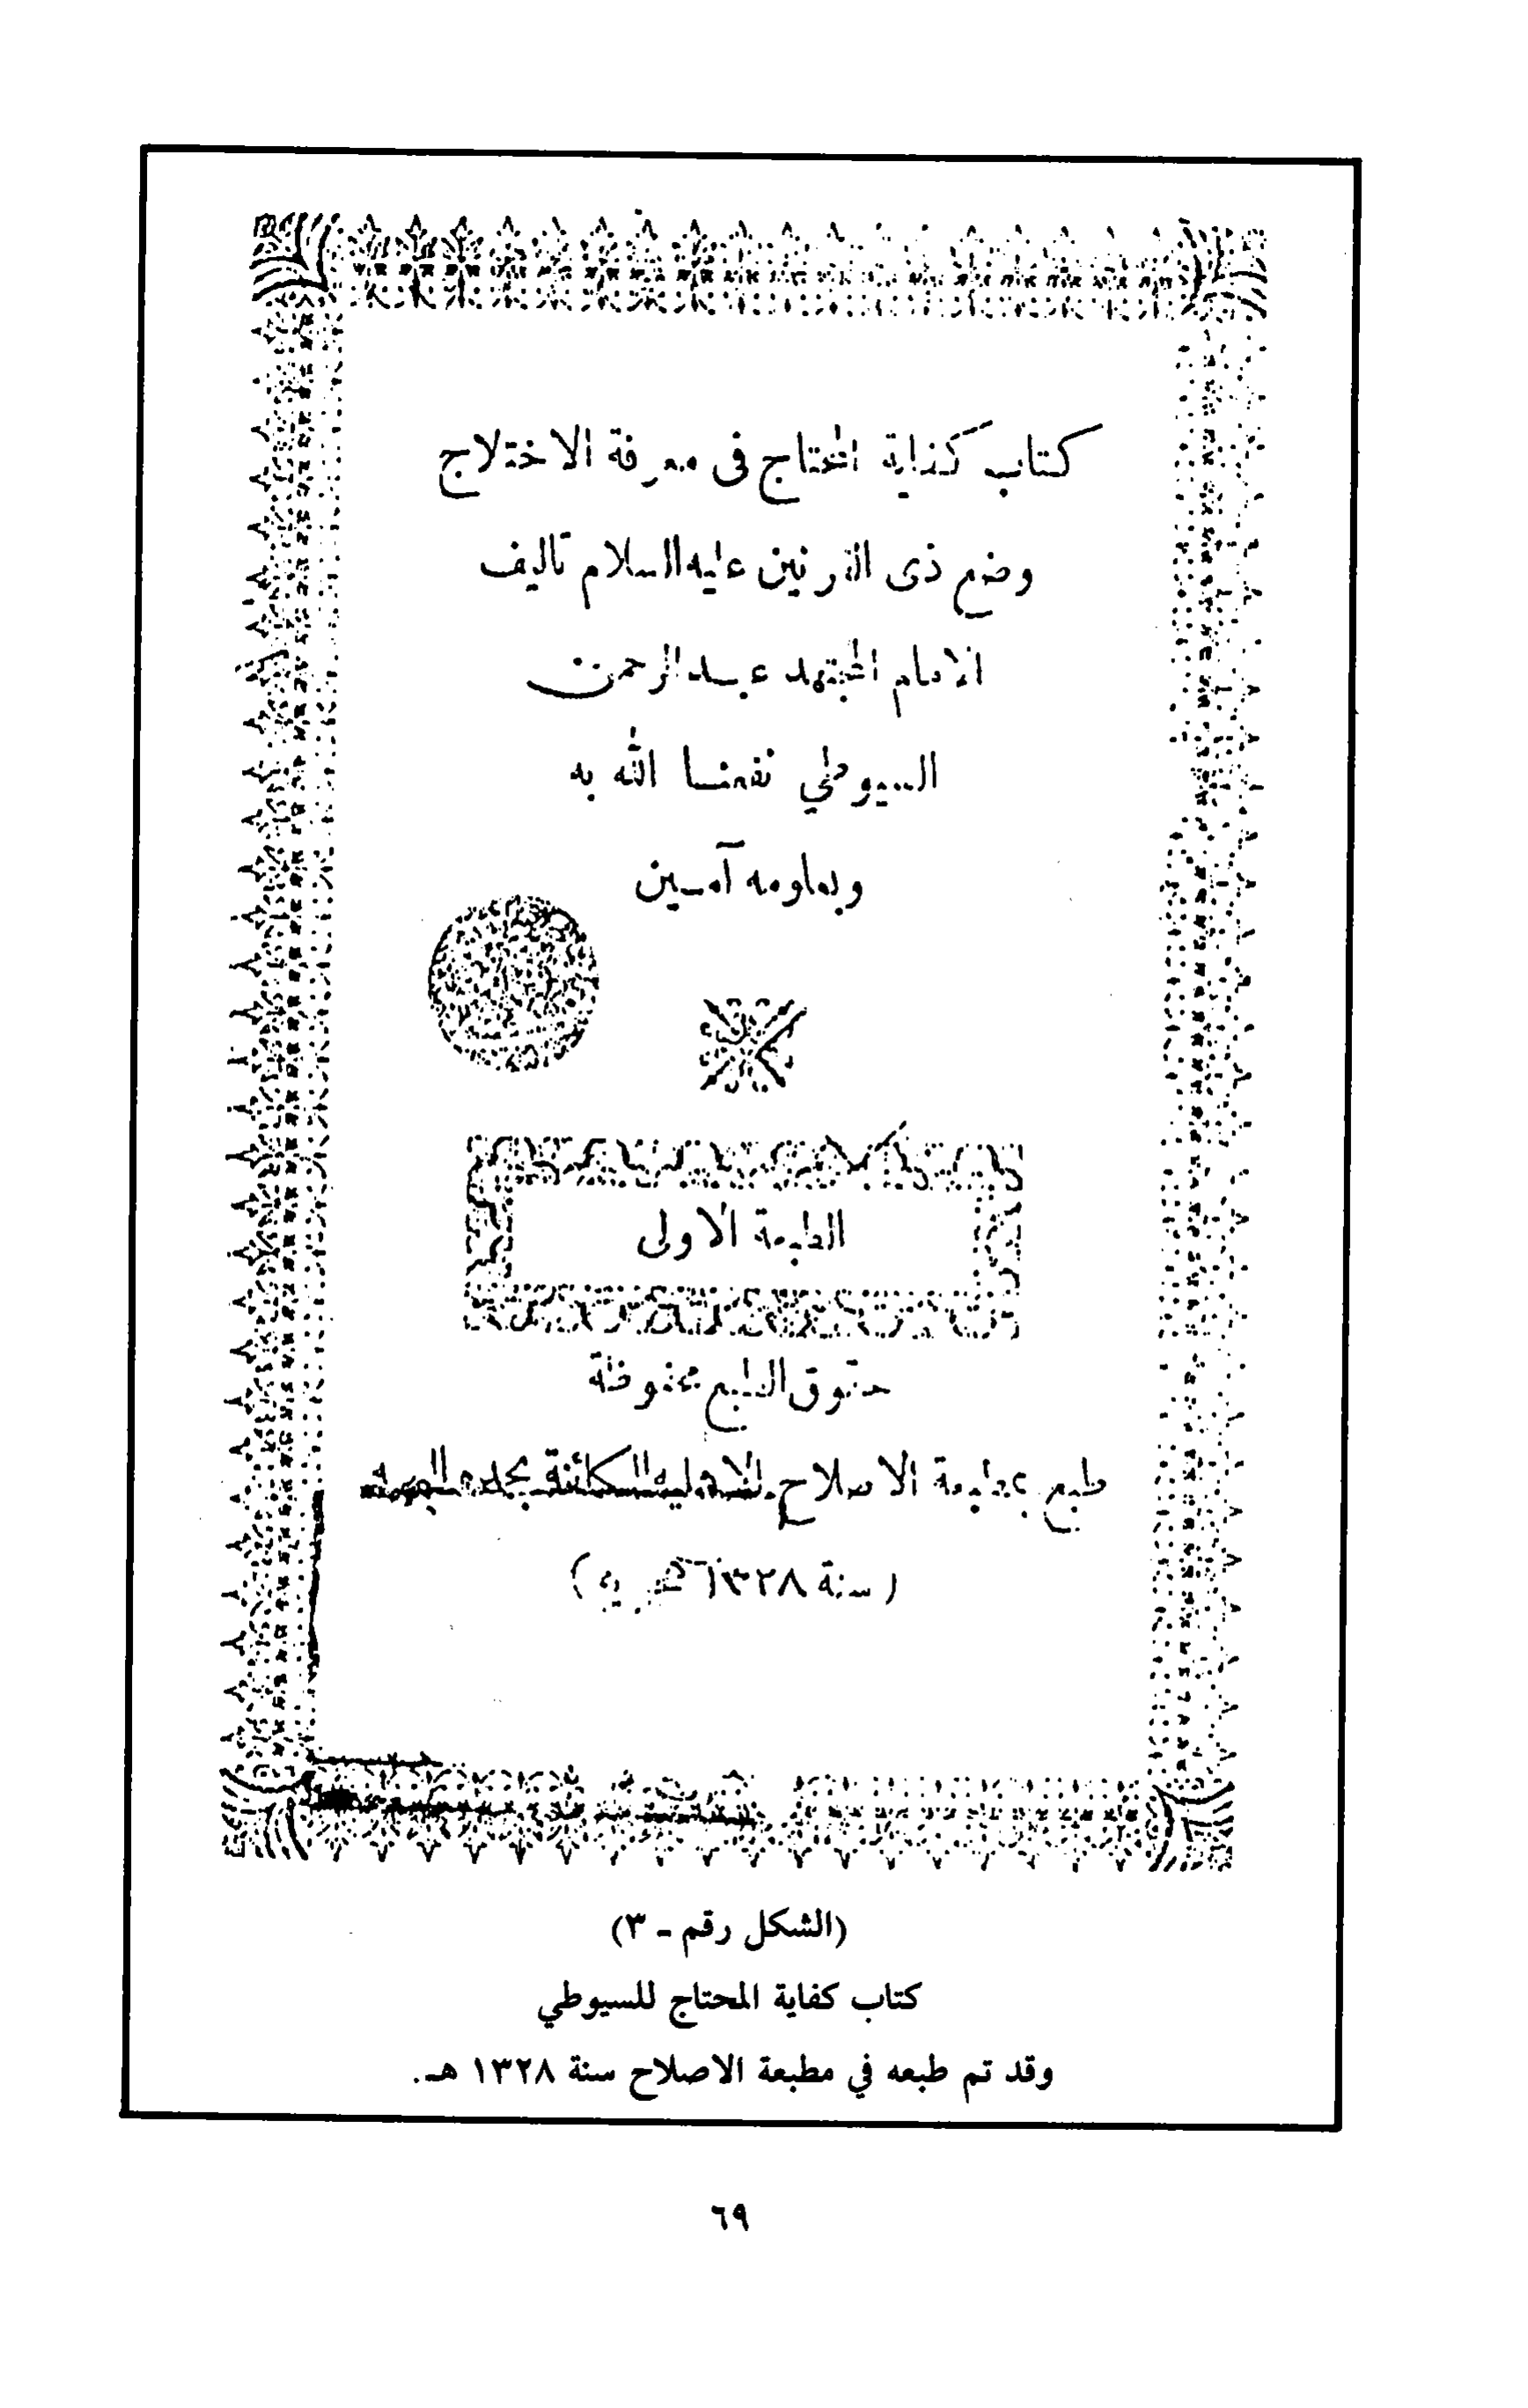 كتاب كفاية المحتاج فى معرفة الاختلاج
وضع ذى القرنين عليه السلام تاليف
الامام المجتهد عبد الرحمن
السيوطي نفعنا الله به
وبعلومه آمين
الطبعة الاولى
حقوق الطبع محفوظة
طبع بمطبعة الاصلاح الاهلية الكائنة بجده
(سنة ١٣٢٨ هجرية)
(الشكل رقم - ٣)
كتاب كفاية المحتاج للسيوطي
وقد تم طبعه في مطبعة الاصلاح سنة ١٣٢٨ هـ.
٦٩